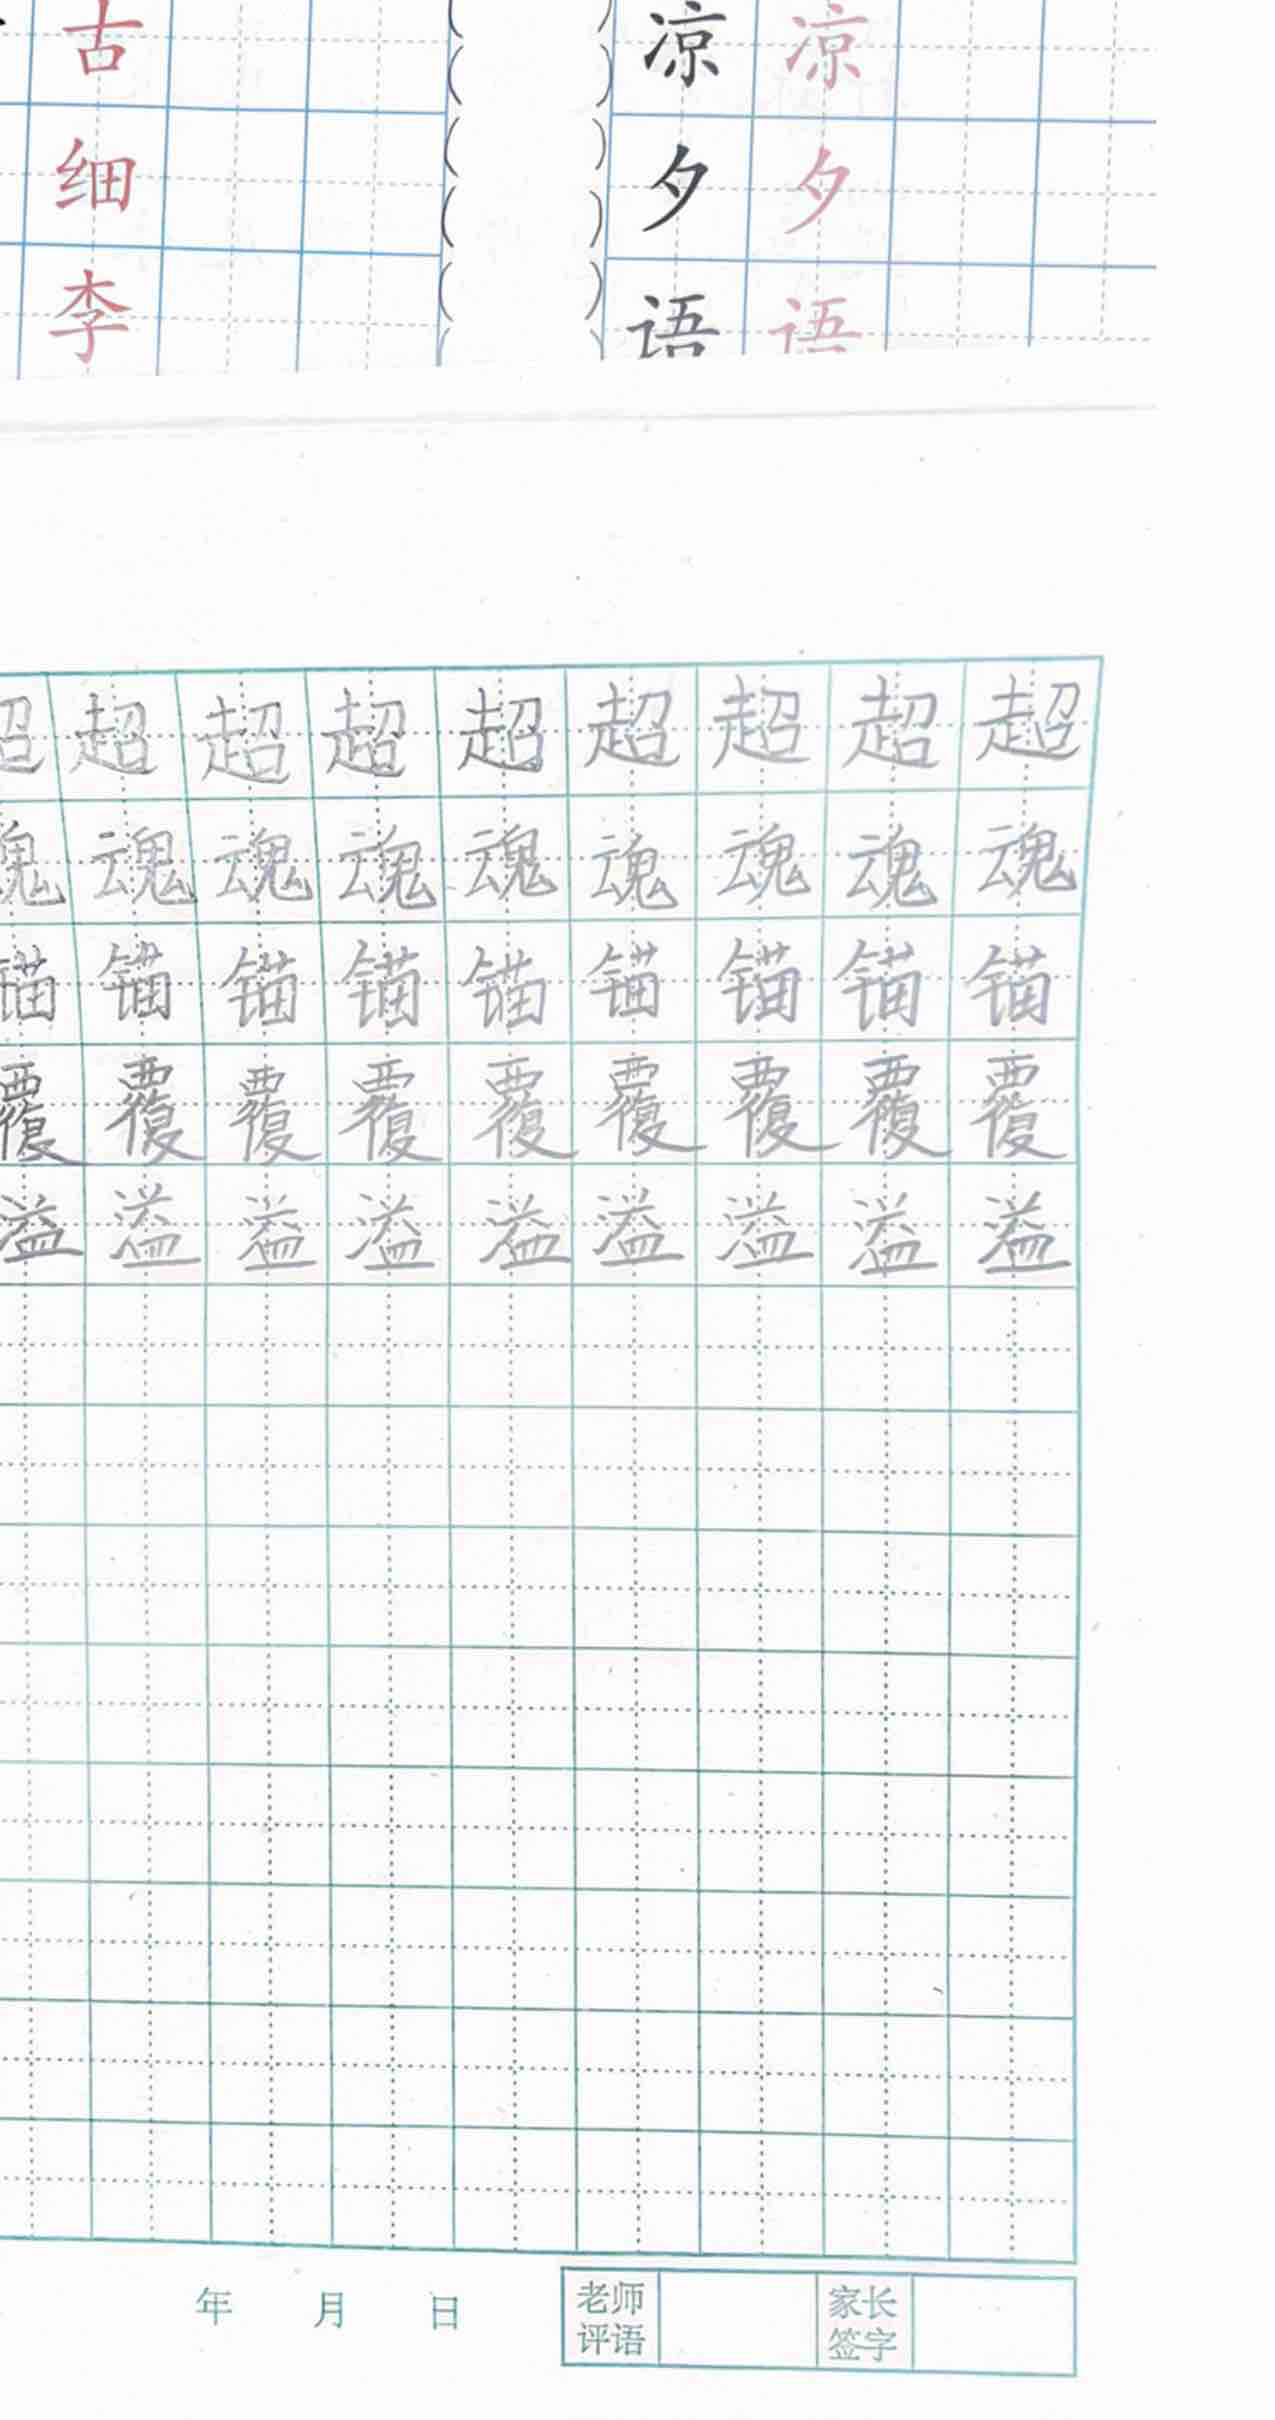 古 ( ) 凉 凉
细 ( ) 夕 夕
李 ( ) 语 语
超 超 超 超 超 超 超 超 超
魂 魂 魂 魂 魂 魂 魂 魂 魂
锚 锚 锚 锚 锚 锚 锚 锚 锚
覆 覆 覆 覆 覆 覆 覆 覆 覆
溢 溢 溢 溢 溢 溢 溢 溢 溢
年 月 日
老师评语
家长签字